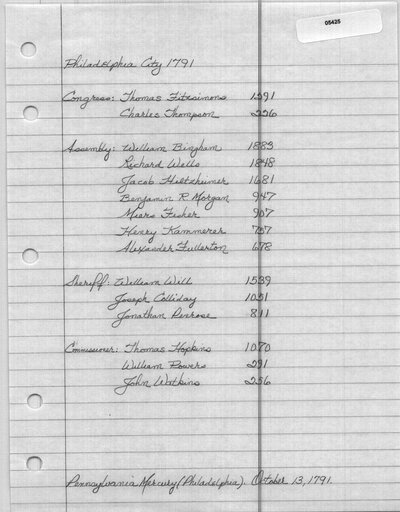 05425
Philadelphia City 1791
Congress: Thomas Fitzsimons 1391
Charles Thompson 226
Assembly: William Bingham 1883
Richard Wells 1848
Jacob Hiltzheimer 1681
Benjamin R. Morgan 947
Miers Fisher 907
Henry Kammerer 707
Alexander Fullerton 678
Sheriff: William Will 1539
Joseph Colliday 1051
Jonathan Penrose 811
Commissioner: Thomas Hopkins 1070
William Powers 291
John Watkins 256
Pennsylvania Mercury (Philadelphia). October 13, 1791.